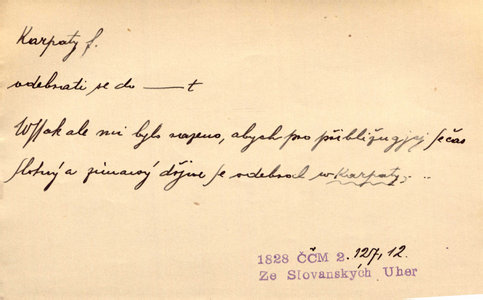 Karpaty f.
odebrati se do —— t
Wssak ale mi bylo razeno, abych pro přibližugjcj se čas
slotný a zimawý dřjwe se odebral w Karpaty; ..
1828 ČČM 2. 127, 12.
Ze Slovanských Uher